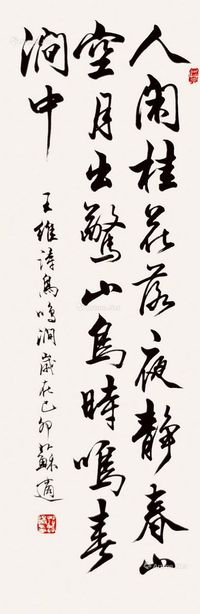 人閑桂花落夜靜春山
空月出驚山鳥時鳴春
澗中
王維詩鳥鳴澗歲在己卯蘇適